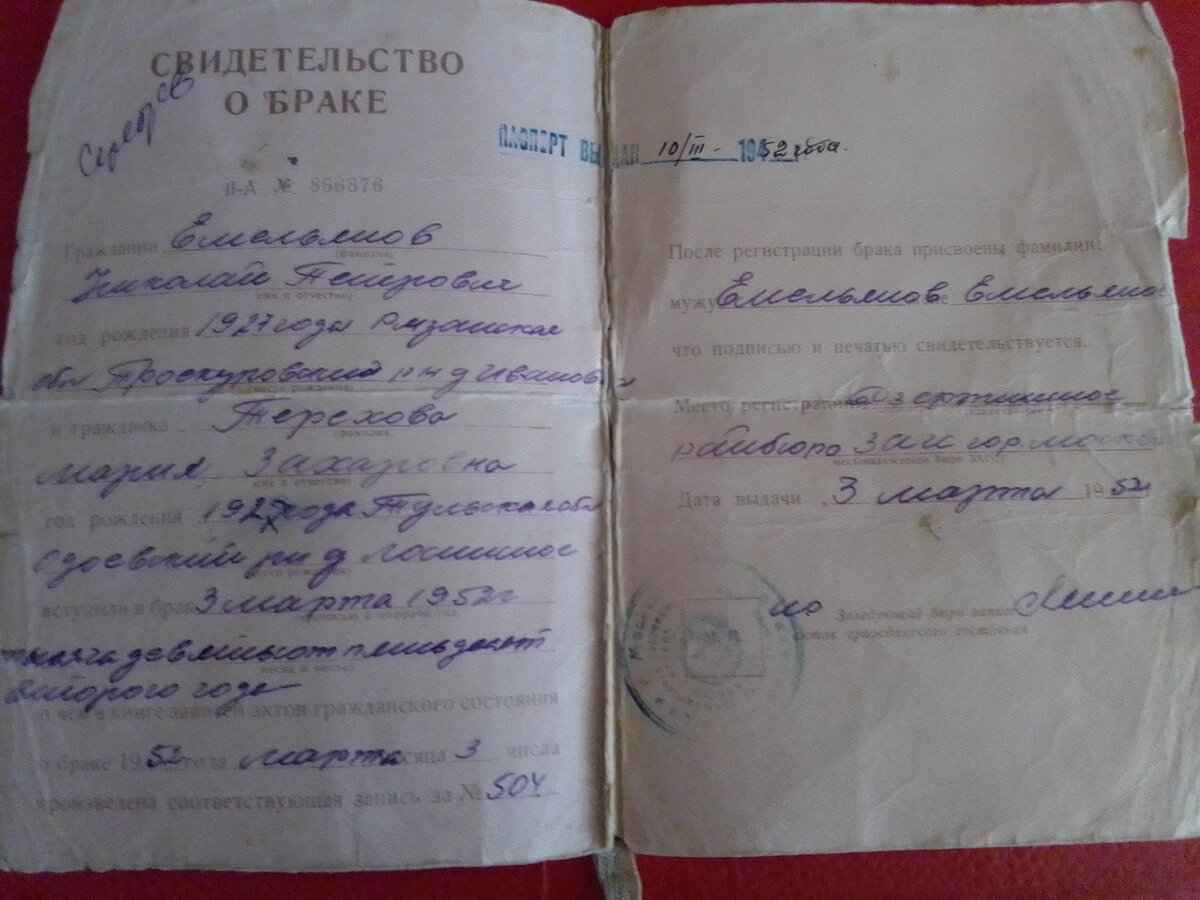 СВИДЕТЕЛЬСТВО
О БРАКЕ
II-А № 866876
Гражданин Емельянов
(фамилия)
Николай Петрович
(имя и отчество)
год рождения 1927 года Рязанская
обл Проскуровский р-н д Ивановка
(место рождения)
и гражданка Терехова
(фамилия)
Мария Захаровна
(имя и отчество)
год рождения 1927 года Тульская обл
Одоевский р-н д
(место рождения)
вступили в брак 3 марта 1952 г
тысяча девятьсот пятьдесят
месяц и число)
второго года
о чем в книге записей актов гражданского состояния
о браке 1952 года марта месяца 3 числа
произведена соответствующая запись за № 504
ПАСПОРТ ВЫДАН 10/III - 1952 года.
После регистрации брака присвоены фамилии:
мужу Емельянов Емельяно
что подписью и печатью свидетельствуется.
Место регистрации
райбюро Загс гор Москвы
местонахождение бюро ЗАГС)
Дата выдачи „3 марта 1952
М. П.
Заведующий бюро записи
актов гражданского состояния